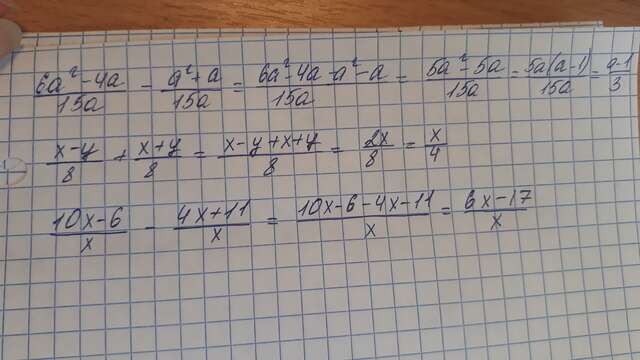 (6a² - 4a)/(15a) - (a² + a)/(15a) = (6a² - 4a - a² - a)/(15a) = (5a² - 5a)/(15a) = 5a(a - 1)/(15a) = (a - 1)/3
(x - y)/8 + (x + y)/8 = (x - y + x + y)/8 = 2x/8 = x/4
(10x - 6)/x - (4x + 11)/x = (10x - 6 - 4x - 11)/x = (6x - 17)/x